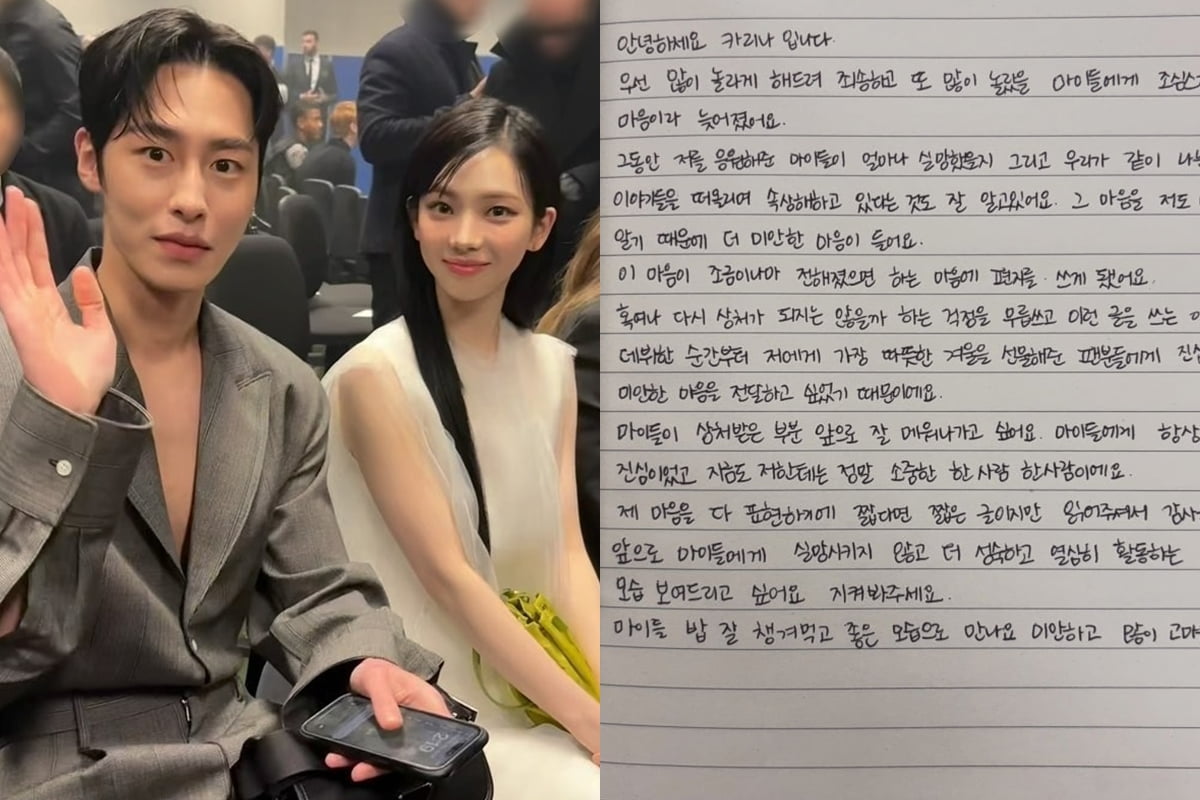 안녕하세요 카리나 입니다.
우선 많이 놀라게 해드려 죄송하고 또 많이 놀랐을 마이들에게 조심스
마음이라 늦어졌어요.
그동안 저를 응원해준 마이들이 얼마나 실망했을지 그리고 우리가 같이 나눈
이야기들을 떠올리며 속상해하고 있다는 것도 잘 알고있어요. 그 마음을 저도
알기 때문에 더 미안한 마음이 들어요.
이 마음이 조금이나마 전해졌으면 하는 마음에 편지를 쓰게 됐어요.
혹여나 다시 상처가 되지는 않을까 하는 걱정을 무릅쓰고 이런 글을 쓰는
데뷔한 순간부터 저에게 가장 따뜻한 겨울을 선물해준 팬분들에게 진심
미안한 마음을 전달하고 싶었기 때문이에요.
마이들이 상처받은 부분 앞으로 잘 메워나가고 싶어요. 마이들에게 항상
진심이었고 지금도 저한테는 정말 소중한 한사람 한사람이에요.
제 마음을 다 표현하기에 짧다면 짧은 글이지만 읽어주셔서 감사
앞으로 마이들에게 실망시키지 않고 더 성숙하고 열심히 활동하는
모습 보여드리고 싶어요 지켜봐주세요.
마이들 밥 잘 챙겨먹고 좋은 모습으로 만나요 미안하고 많이 고마
2:19